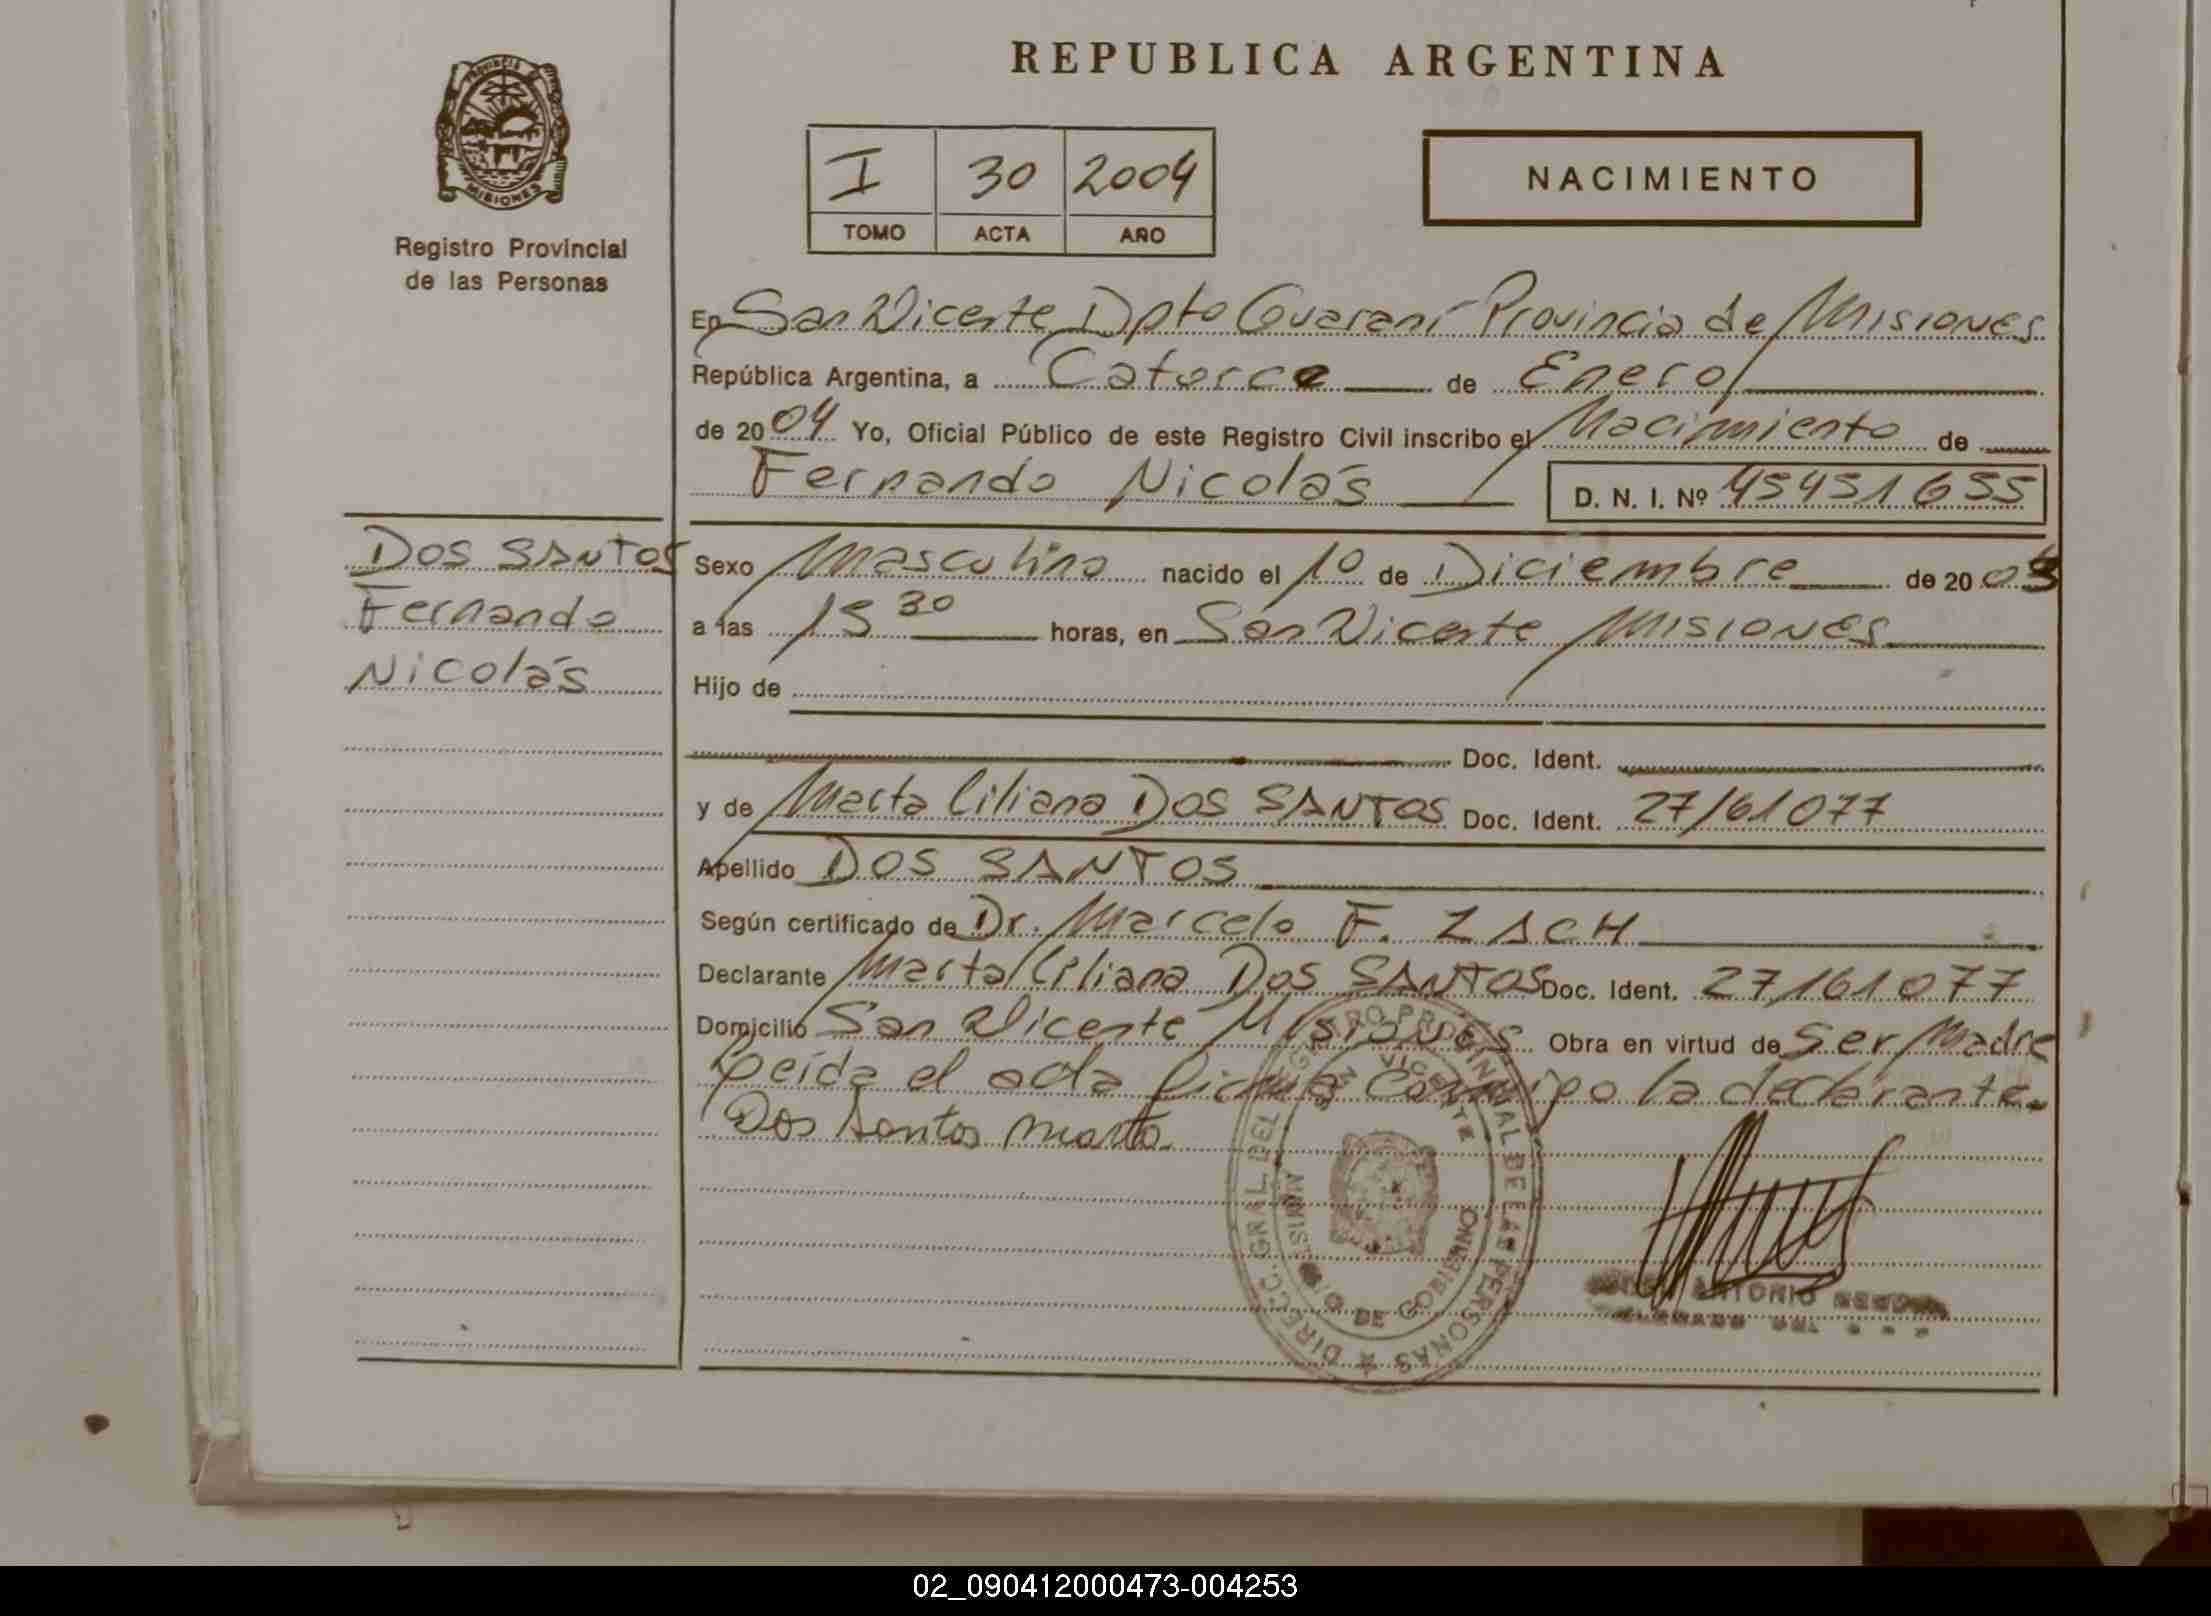 REPUBLICA ARGENTINA
PROVINCIA DE
MISIONES
Registro Provincial
de las Personas
I 30 2004
TOMO ACTA AÑO
NACIMIENTO
En San Vicente Dpto Guaraní Provincia de Misiones
República Argentina, a Catorce de Enero
de 2004 Yo, Oficial Público de este Registro Civil inscribo el Nacimiento de
Fernando Nicolás D. N. I. Nº 45451655
DOS SANTOS
Fernando
Nicolás
Sexo Masculino nacido el 1º de Diciembre de 2003
a las 15 30 horas, en San Vicente Misiones
Hijo de
Doc. Ident.
y de Marta Liliana DOS SANTOS Doc. Ident. 27161077
Apellido DOS SANTOS
Según certificado de Dr. Marcelo F. ZACH
Declarante Marta Liliana DOS SANTOS Doc. Ident. 27161077
Domicilio San Vicente Misiones Obra en virtud de ser Madre
Leída el acta firma conmigo la declarante.
Dos Santos Marta
DIRECC. GRAL. DEL REGISTRO PROVINCIAL DE LAS PERSONAS
SAN VICENTE
MINISTERIO DE GOBIERNO
ANTONIO
02_090412000473-004253